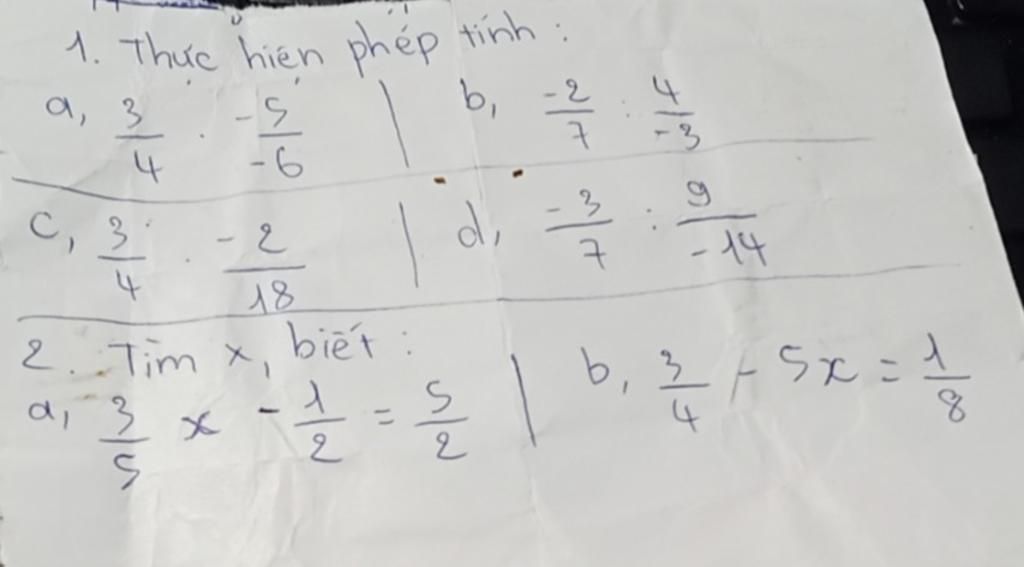 1. Thực hiện phép tính :
a, 3/4 . -5/-6 | b, -2/7 : 4/-3
c, 3/4 . -2/18 | d, -3/7 : 9/-14
2. Tìm x, biết :
a, 3/5 x - 1/2 = 5/2 | b, 3/4 - 5x = 1/8